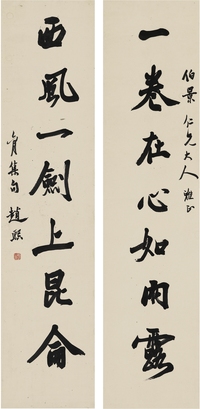 伯景仁兄大人雅正
一卷在心如雨露
西風一劍上昆侖
肖集句趙熙